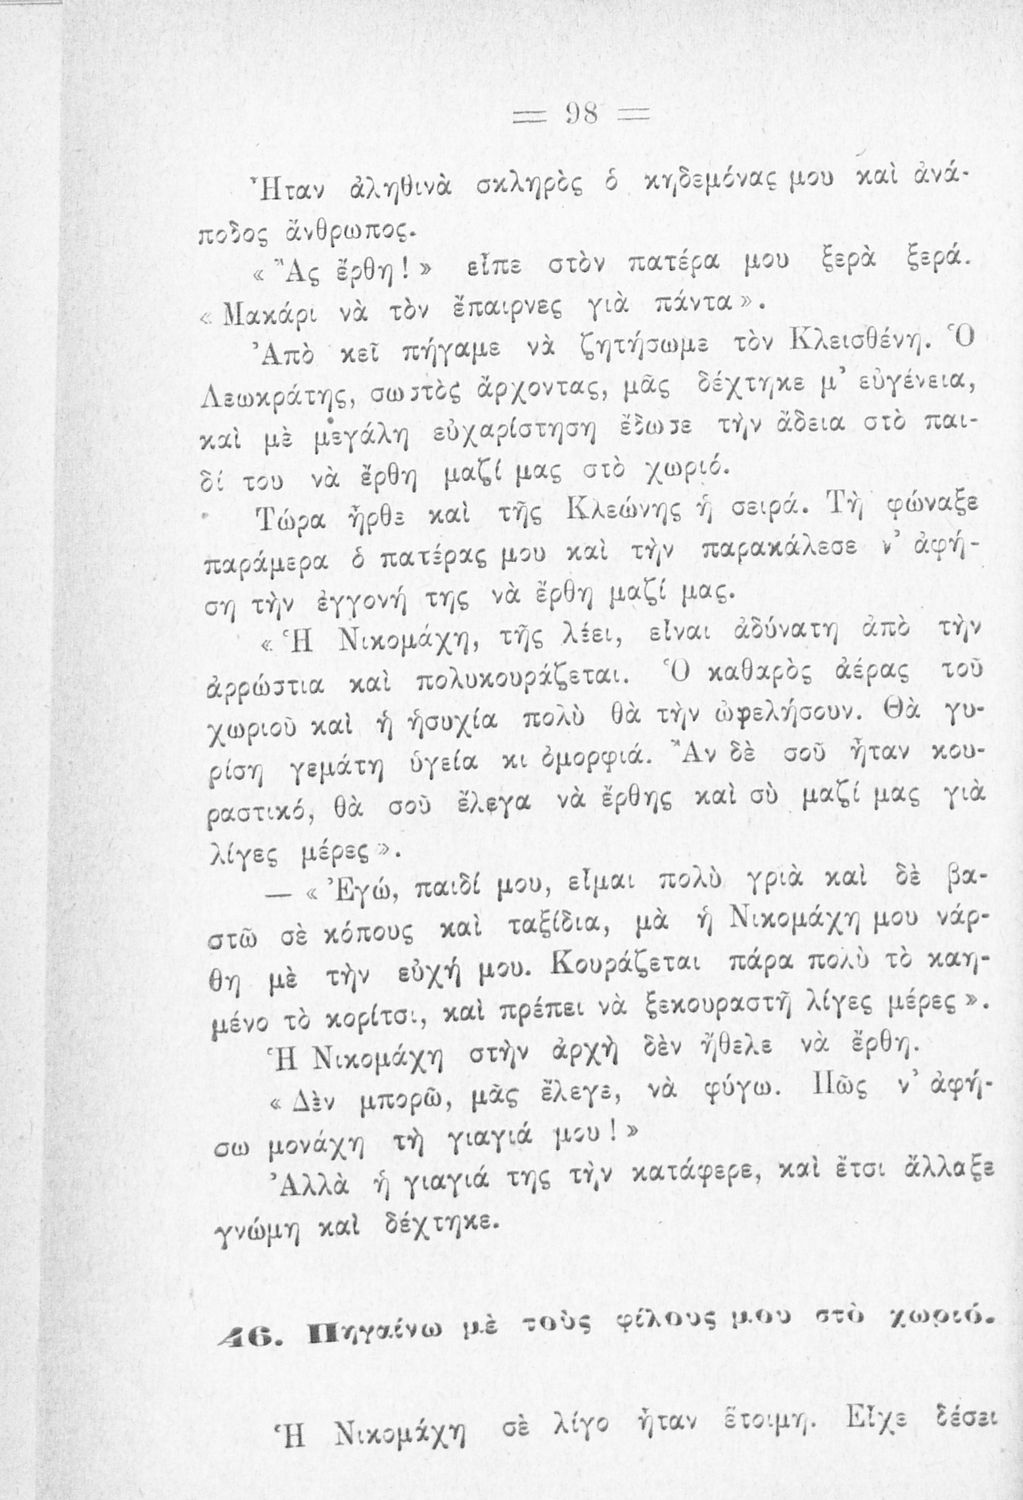 = 98 =
Ἦταν ἀληθινὰ σκληρὸς ὁ κηδεμόνας μου καὶ ἀνά-
ποδος ἄνθρωπος.
« Ἂς ἔρθη! » εἶπε στὸν πατέρα μου ξερὰ ξερά.
« Μακάρι νὰ τὸν ἔπαιρνες γιὰ πάντα ».
Ἀπὸ κεῖ πήγαμε νὰ ζητήσωμε τὸν Κλεισθένη. Ὁ
Λεωκράτης, σωστὸς ἄρχοντας, μᾶς δέχτηκε μ' εὐγένεια,
καὶ μὲ μεγάλη εὐχαρίστηση ἔδωσε τὴν ἄδεια στὸ παι-
δί του νὰ ἔρθη μαζί μας στὸ χωριό.
Τώρα ἦρθε καὶ τῆς Κλεώνης ἡ σειρά. Τὴ φώναξε
παράμερα ὁ πατέρας μου καὶ τὴν παρακάλεσε ν' ἀφή-
ση τὴν ἐγγονή της νὰ ἔρθη μαζί μας.
« Ἡ Νικομάχη, τῆς λέει, εἶναι ἀδύνατη ἀπὸ τὴν
ἀρρώστια καὶ πολυκουράζεται. Ὁ καθαρὸς ἀέρας τοῦ
χωριοῦ καὶ ἡ ἡσυχία πολὺ θὰ τὴν ὠφελήσουν. Θὰ γυ-
ρίση γεμάτη ὑγεία κι ὀμορφιά. Ἂν δὲ σοῦ ἦταν κου-
ραστικό, θὰ σοῦ ἔλεγα νὰ ἔρθης καὶ σὺ μαζί μας γιὰ
λίγες μέρες ».
— « Ἐγώ, παιδί μου, εἶμαι πολὺ γριὰ καὶ δὲ βα-
στῶ σὲ κόπους καὶ ταξίδια, μὰ ἡ Νικομάχη μου νάρ-
θη μὲ τὴν εὐχή μου. Κουράζεται πάρα πολὺ τὸ καη-
μένο τὸ κορίτσι, καὶ πρέπει νὰ ξεκουραστῆ λίγες μέρες ».
Ἡ Νικομάχη στὴν ἀρχὴ δὲν ἤθελε νὰ ἔρθη.
« Δὲν μπορῶ, μᾶς ἔλεγε, νὰ φύγω. Πῶς ν' ἀφή-
σω μονάχη τὴ γιαγιά μου! »
Ἀλλὰ ἡ γιαγιά της τὴν κατάφερε, καὶ ἔτσι ἄλλαξε
γνώμη καὶ δέχτηκε.
46. Πηγαίνω μὲ τοὺς φίλους μου στὸ χωριό.
Ἡ Νικομάχη σὲ λίγο ἦταν ἕτοιμη. Εἶχε δέσει